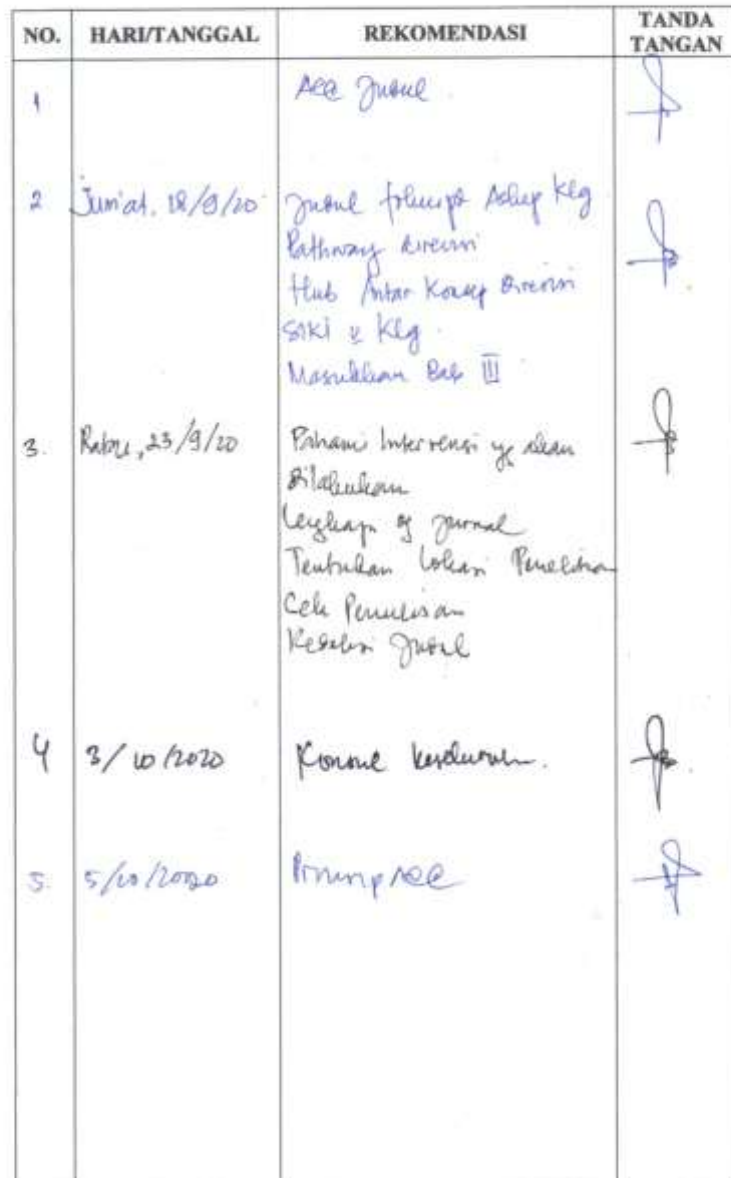 NO. HARI/TANGGAL REKOMENDASI TANDA TANGAN
1 Acc Judul
2 Jum'at, 18/9/20 Judul Askep Klg
Pathway direvisi
Hub Antar Konsep direvisi
SIKI Klg
Masukkan Bab III
3. Rabu, 23/9/20 Pahami Intervensi yg akan
dilakukan
Lengkapi dg jurnal
Tentukan Lokasi Penelitian
Cek Penulisan
Redaksi Judul
4 3/10/2020 Konsul
5. 5/10/2020 Prinsip ACC